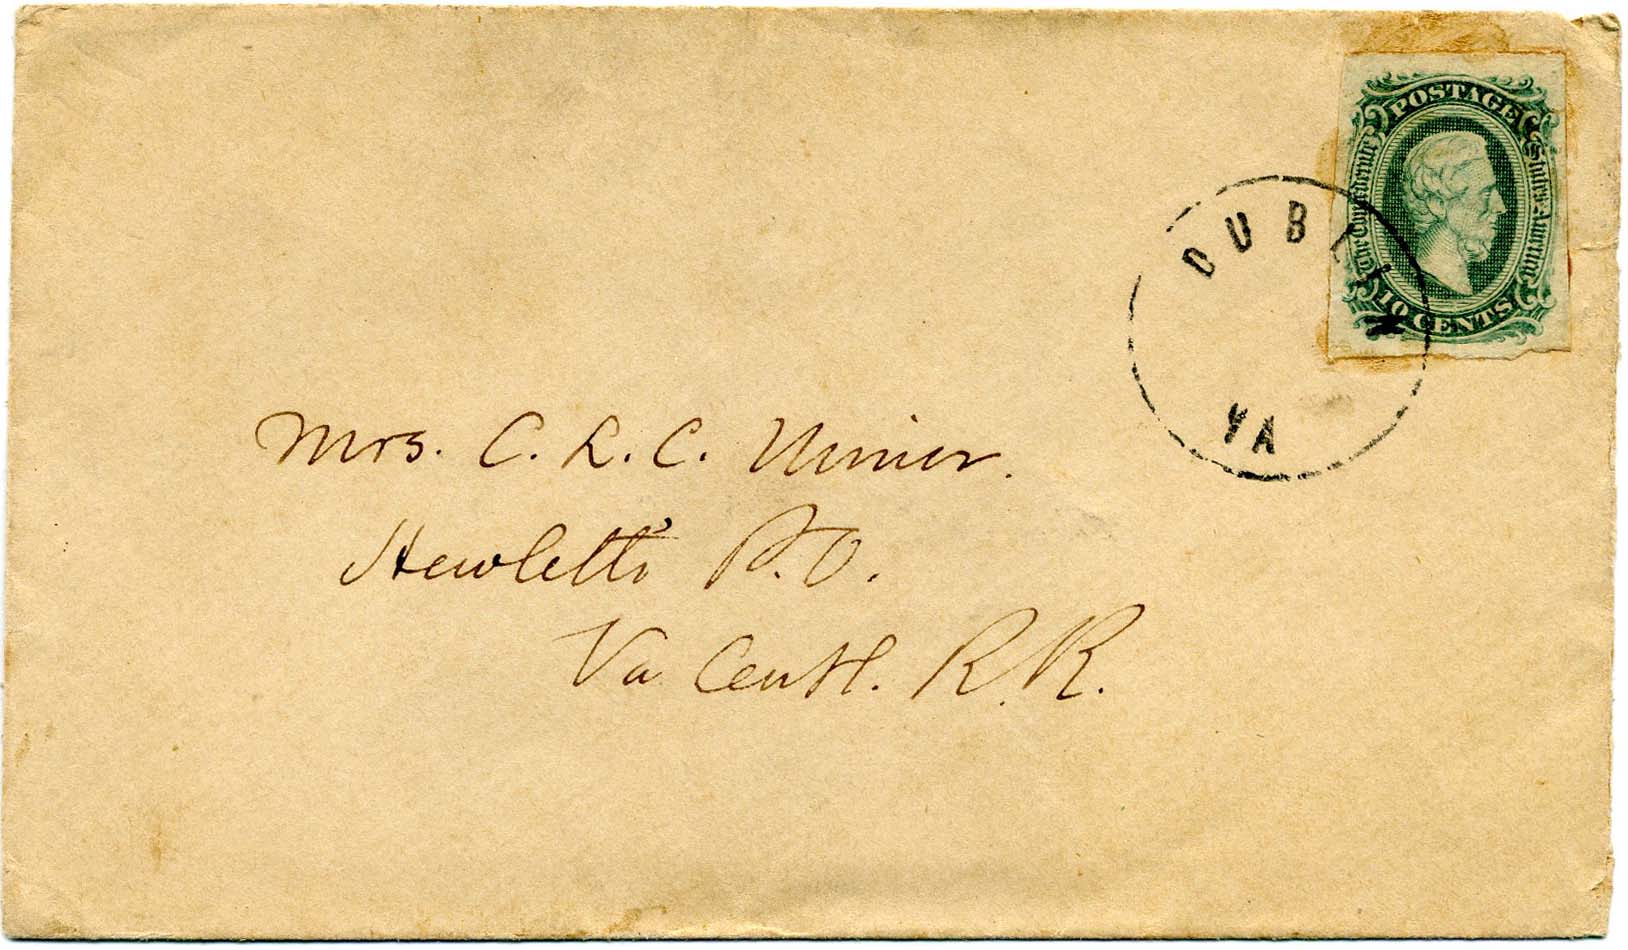 POSTAGE
The Confederate
States America
10 CENTS
DUBLIN
VA
Mrs. C. L. C. Minor.
Hewlett's P.O.
Va Centl. R.R.